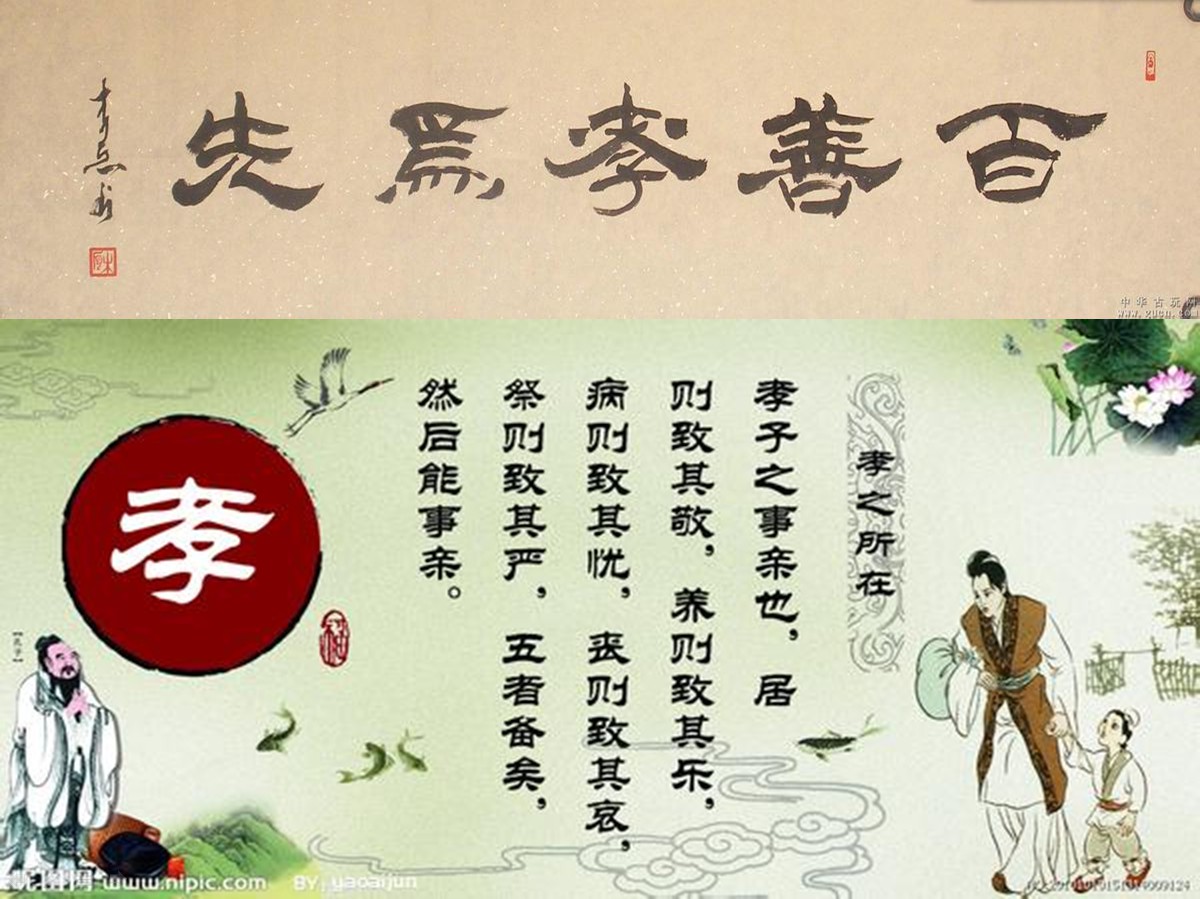 百善孝為先
中华古玩网
www.gucn.com
孝之所在
孝子之事亲也，居
则致其敬，养则致其乐，
病则致其忧，丧则致其哀，
祭则致其严，五者备矣，
然后能事亲。
孝
【孔子】
昵图网 www.nipic.com BY: yaoaijun